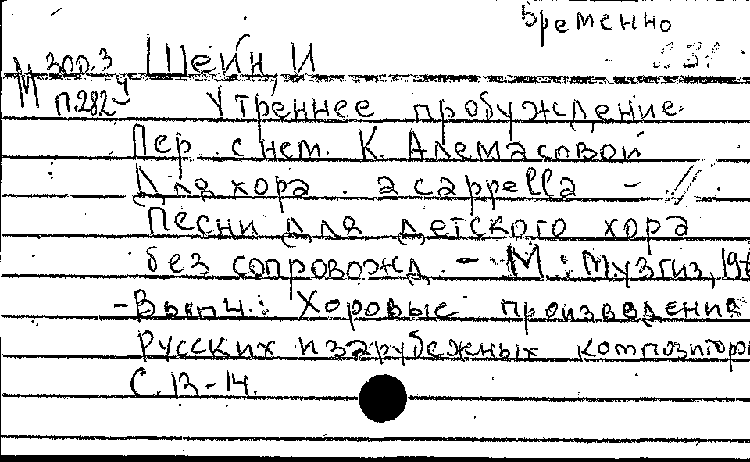 Временно
М 300.3 Шейн, И
П.282-4 Утреннее пробуждение.
Пер. с нем. К. Алемасовой
Для хора. a cappella - //
Песни для детского хора
без сопровожд. - М.: Музгиз, 196
- Вып 4.: Хоровые произведения
русских и зарубежных композиторо
С. 13-14.